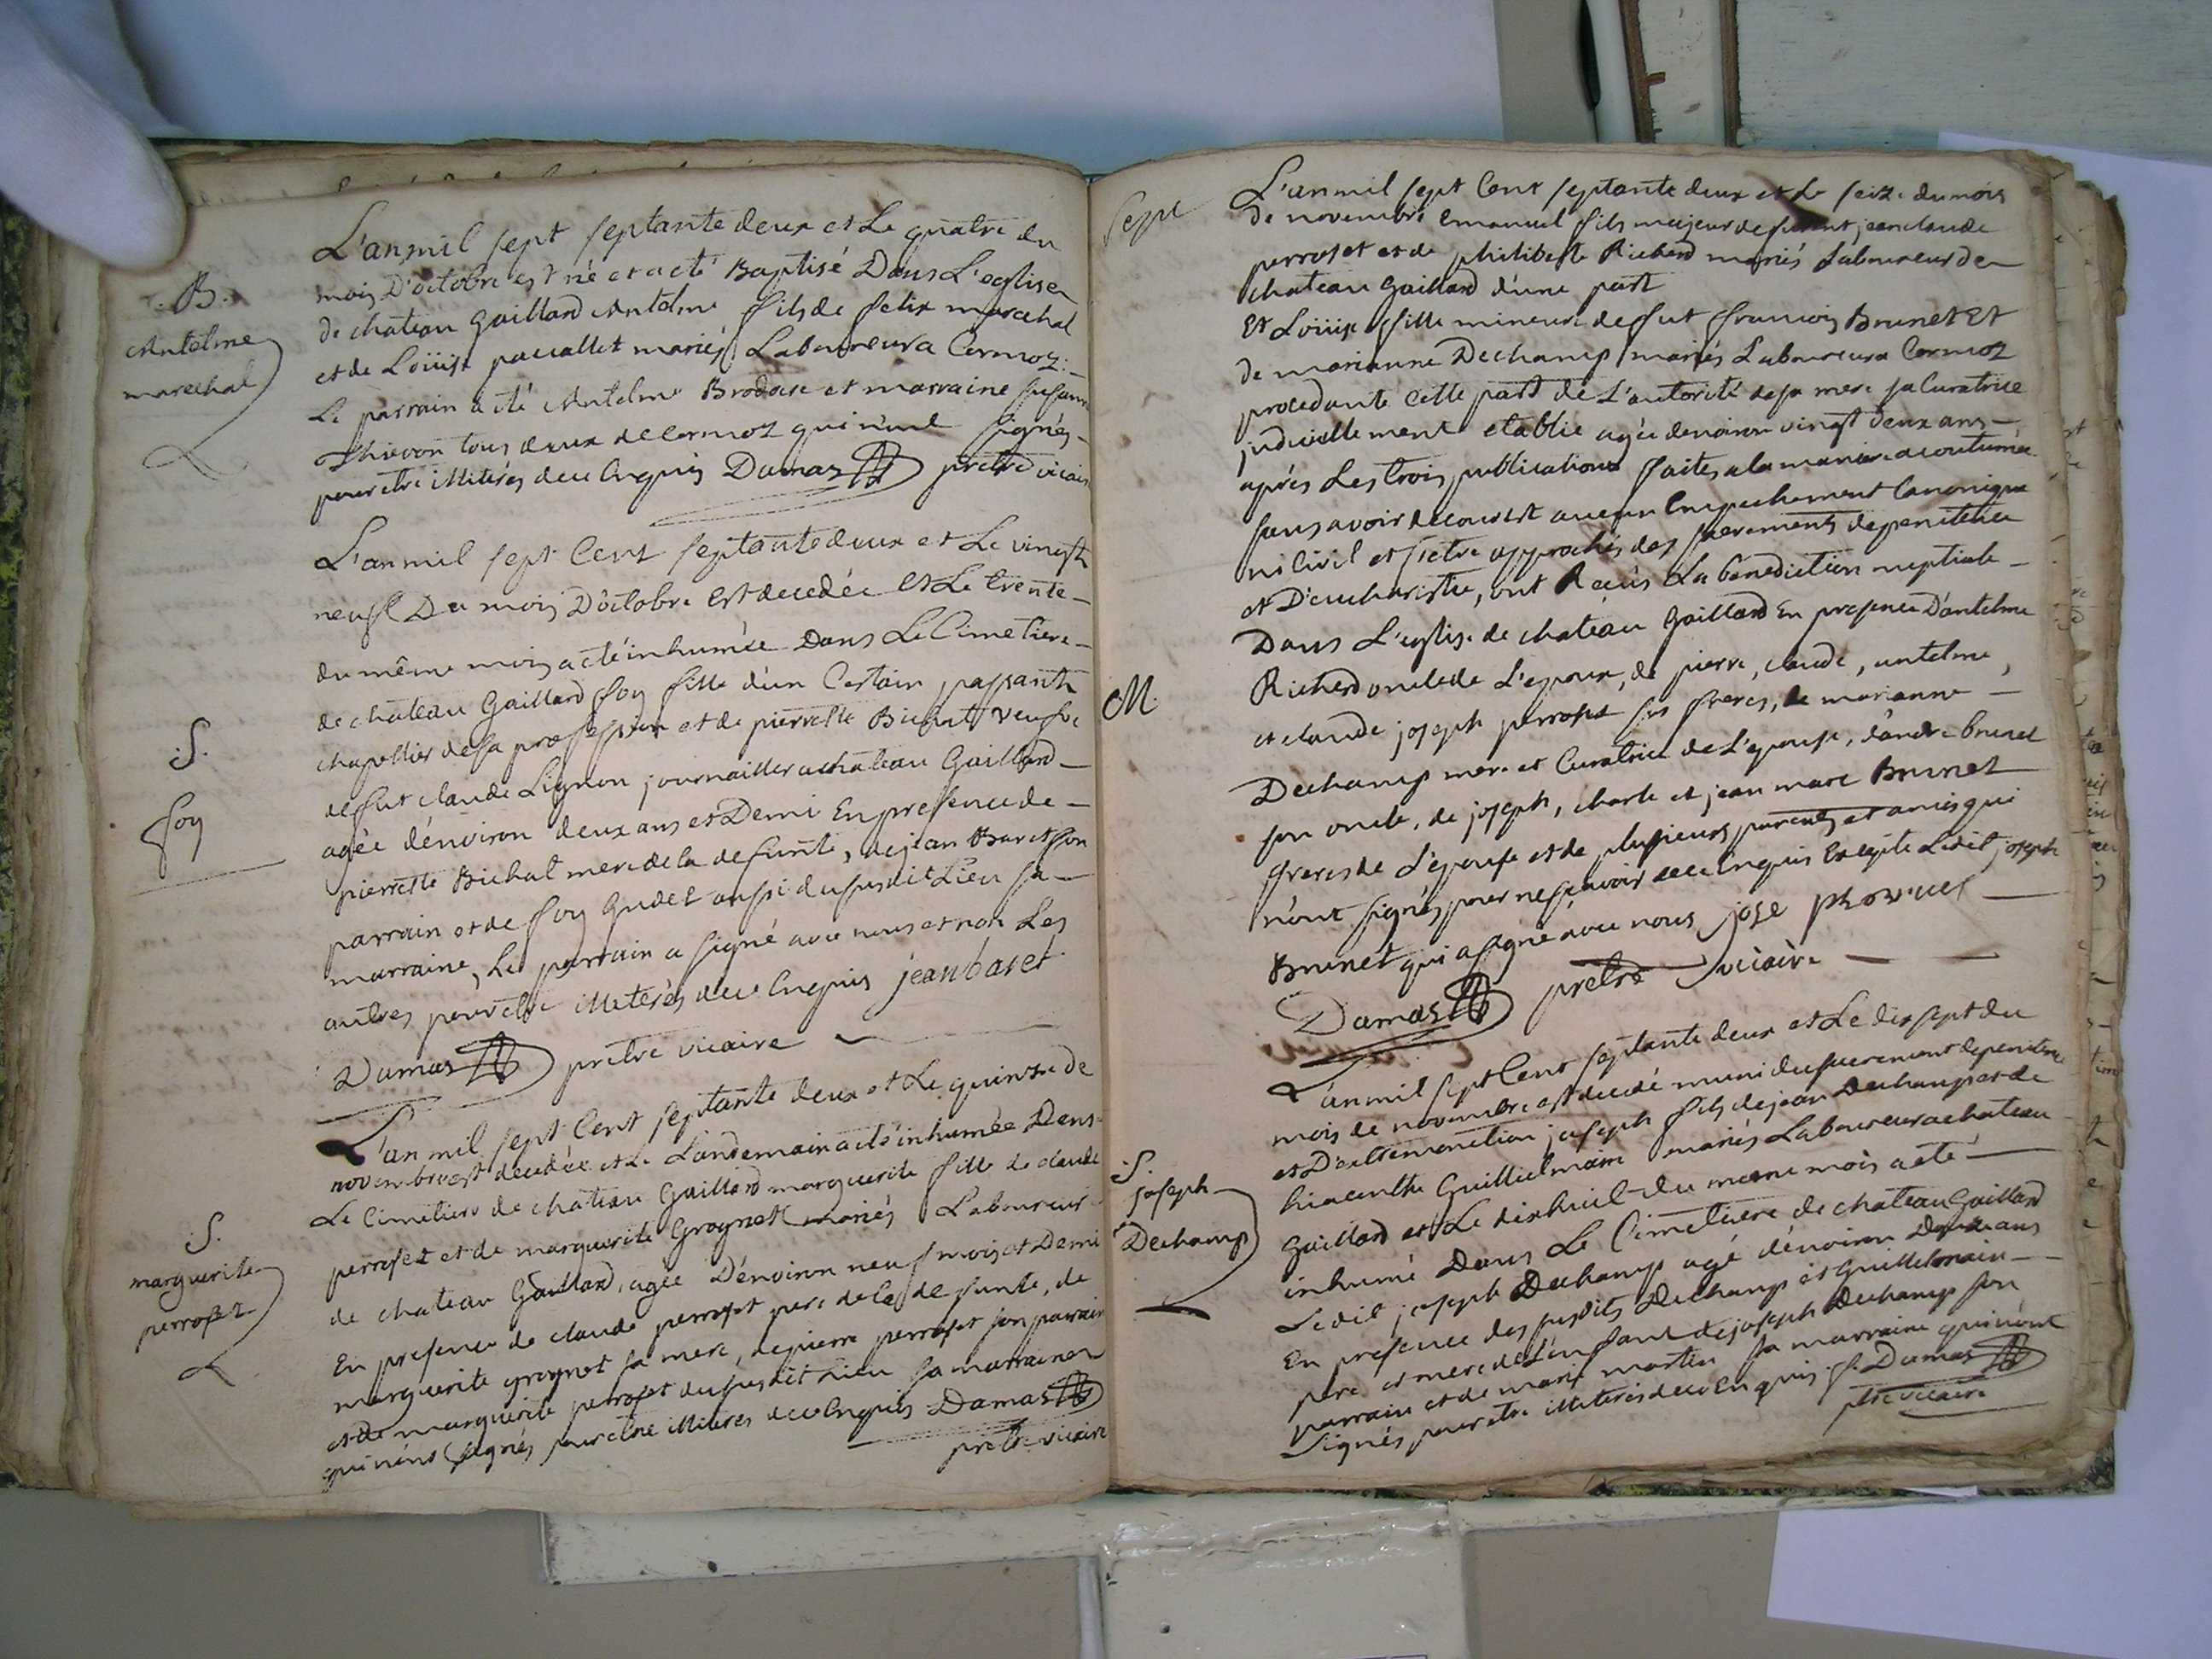 B.
Antelme
marechal
L'an mil sept septante deux et Le quatre du
mois D'octobre est né et a eté Baptisé Dans L'eglise
de chateau Gaillard Antelme fils de felix marechal
et de Loüise paccallet mariés Laboureur a Cormoz.
Le parrain a été Antelme Brodier et marraine susanne
Thievon tous deux de Cormoz qui n'ont signés
pour etre illiterés de ce Enquis Damas prêtre vicaire
S.
foy
L'an mil sept Cent septante deux et Le vingt
neuf Du mois D'octobre Est decedée Et Le trente
du même mois a eté inhumée Dans Le Cimetiere
de chateau Gaillard foy fille d'un Certain passant
chapellier de sa profession et de pierrette Bichat veufve
de fut claude Lignon journaillier a chateau Gaillard
agée d'environ deux ans et Demi En presence de
pierrette Bichat mere de la defunte, de jean Baret son
parrain et de foy Gudet aussi du susdit Lieu sa
marraine, Le parrain a signé avec nous et non Les
autres pour etre illiterés de ce Enquis jean baret
Damas prêtre vicaire
S.
marguerite
perroset
L'an mil sept Cent septante deux et Le quinze de
novembre est decedée et Le Landemain a eté inhumée Dans
Le Cimetiere de chateau Gaillard marguerite fille de claude
perroset et de marguerite Grognet mariés Laboureur
de chateau Gaillard, agée D'environ neuf mois et Demi
En presence de claude perroset pere de la defunte, de
marguerite grognet sa mere, de pierre perroset son parrain
et de marguerite perroset du susdit Lieu sa marraine
qui n'ont signés pour etre illiteres de ce Enquis Damas
prêtre vicaire
Sept
M.
L'an mil sept Cent septante deux et Le seize du mois
de novembre Emanuel fils majeur de furent jean claude
perroset et de philiberte Richerd mariés Laboureur de
chateau Gaillard d'une part
Et Loüise fille mineure de fut francois Brunet Et
de marianne Dechamp mariés Laboureur a Cormoz
procedante Cette part de L'autorité de sa mere sa Curatrice
judiciellement etablie agée denviron vingt deux ans
aprés Les trois publications faites a la maniere acoutumée
sans avoir decouvert aucun Empechement Canonique
ni Civil et s'etre approchés des sacrements de penitence
et D'eucharistie, ont Recus La benediction nuptiale
Dans L'eglise de chateau Gaillard En presence D'antelme
Richerd oncle de L'epoux, de pierre, claude, antelme,
et claude joseph perroset ses freres, de marianne
Dechamp mere et Curatrice de L'epouse, d'andre brunet
son oncle, de joseph, charle et jean marc Brunet
freres de L'epouse et de plusieurs parents et amis qui
n'ont signés pour ne sçavoir de ce Enquis Excepte Ledit joseph
Brunet qui a signé avec nous jose
Damas prêtre vicaire
S.
joseph
Dechamp
L'an mil sept Cent septante deux et Le dix sept du
mois de novembre est decedé muni du sacrement de penitence
et D'extremonction joseph fils de jean Dechamp et de
hiacinthe Guillielmain mariés Laboureur a chateau
Gaillard et Le dixhuit du meme mois a eté
inhumé Dans Le Cimetiere de chateau Gaillard
Ledit joseph Dechamp agé d'environ ans
En presence des susdits Dechamp et Guillelmain
pere et mere de L'enfant de joseph Dechamp son
parrain et de marie martin sa marraine qui n'ont
signés pour etre illiterés de ce Enquis f. Damas
ptre vicaire